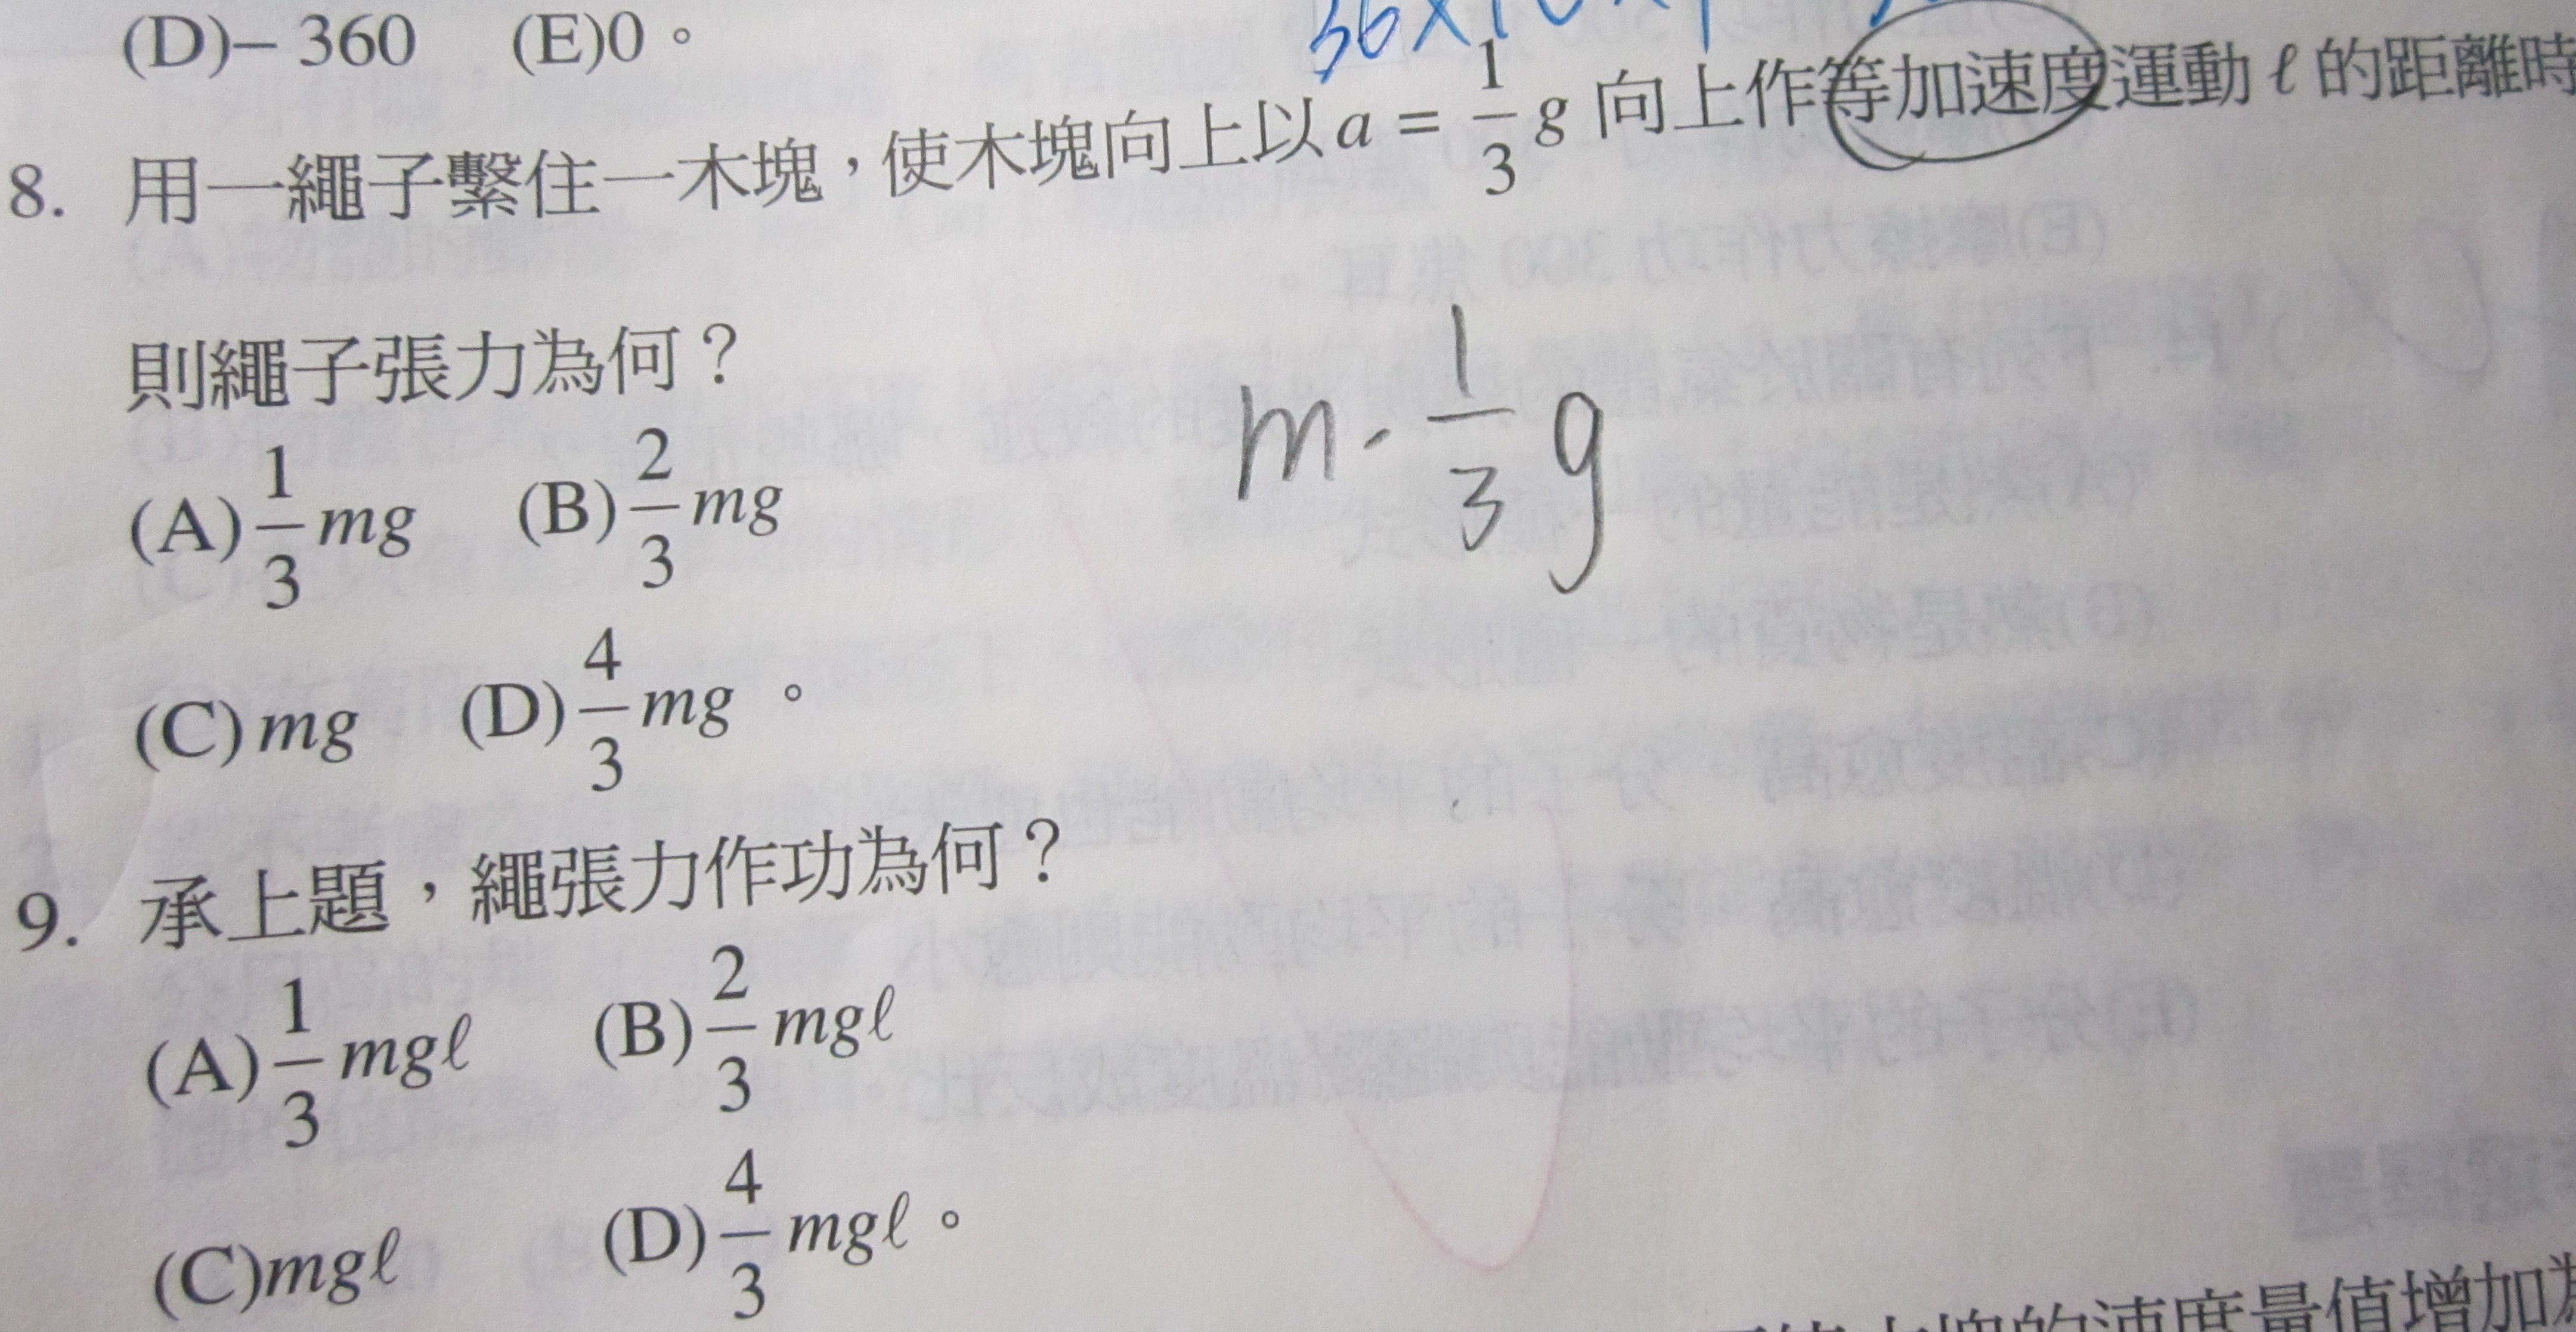 (D)– 360 (E)0。
8. 用一繩子繫住一木塊，使木塊向上以 a = 1/3 g 向上作等加速度運動 ℓ 的距離時
則繩子張力為何？
m · 1/3 g
(A) 1/3 mg (B) 2/3 mg
(C) mg (D) 4/3 mg 。
9. 承上題，繩張力作功為何？
(A) 1/3 mgℓ (B) 2/3 mgℓ
(C)mgℓ (D) 4/3 mgℓ。
的速度量值增加為